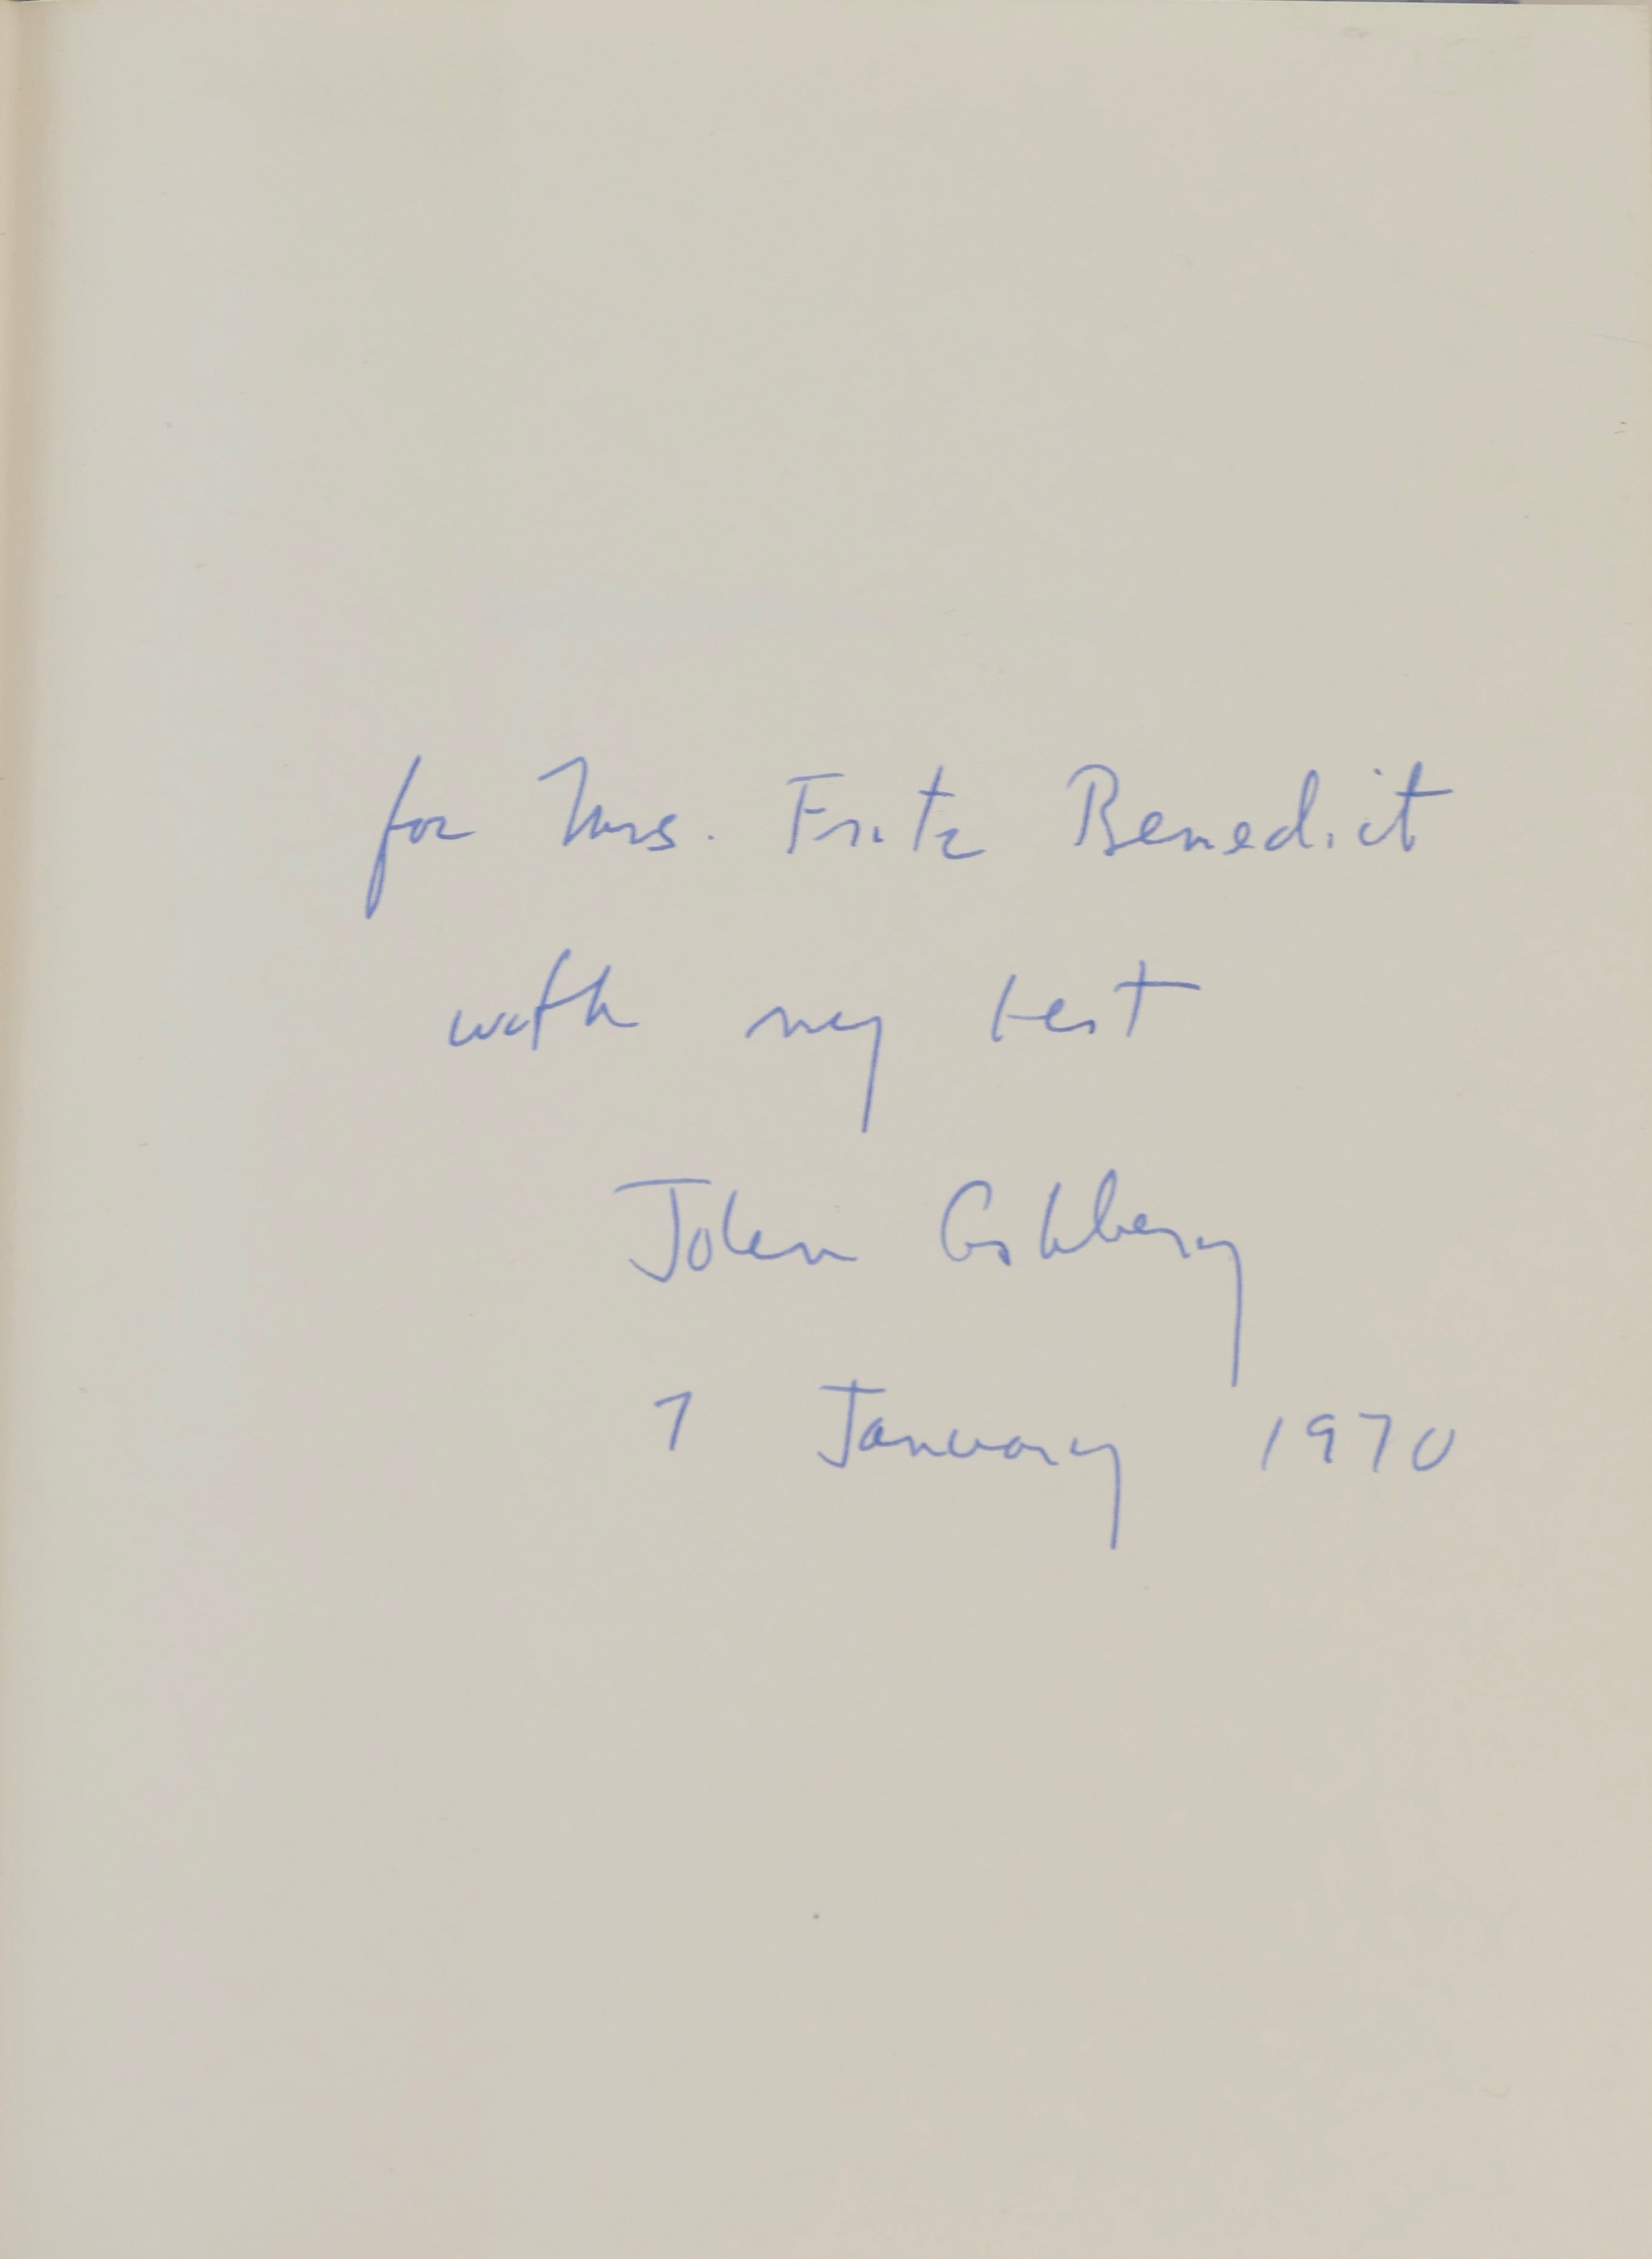 for Mrs. Fritz Benedict
with my best
John Ashbery
7 January 1970